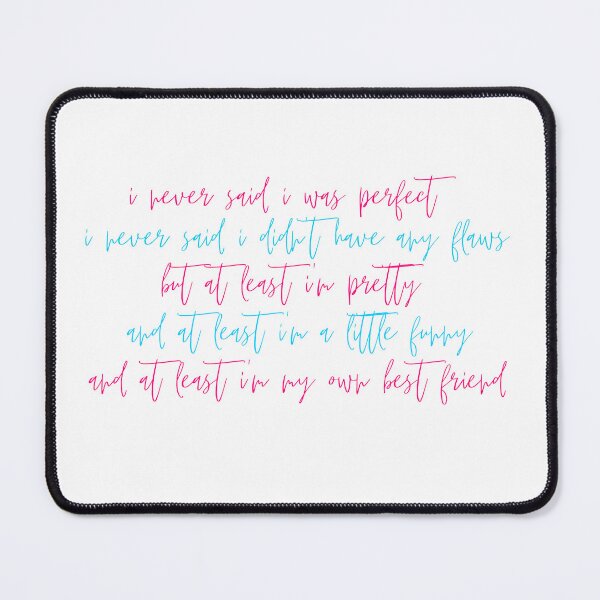 i never said i was perfect
i never said i didn't have any flaws
but at least i'm pretty
and at least i'm a little funny
and at least i'm my own best friend